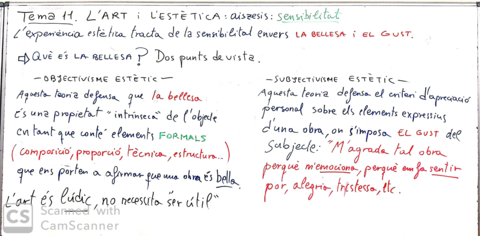 Tema 11. L'ART i L'ESTÈTICA: aiszesis: sensibilitat
L'experiència estètica tracta de la sensibilitat envers LA BELLESA i EL GUST.
⇨ QUÈ ÉS LA BELLESA? Dos punts de vista.
- OBJECTIVISME ESTÈTIC -
Aquesta teoria defensa que la bellesa
és una propietat "intrínseca" de l'objecte
en tant que conté elements FORMALS
(composició, proporció, tècnica, estructura...)
que ens porten a afirmar que una obra és bella.
L'art és lúdic, no necessita "ser útil"
- SUBJECTIVISME ESTÈTIC -
Aquesta teoria defensa el criteri d'apreciació
personal sobre els elements expressius
d'una obra, on s'imposa EL GUST del
subjecte: "M'agrada tal obra
perquè m'emociona, perquè em fa sentir
por, alegria, tristesa, etc.
CS Scanned with
CamScanner